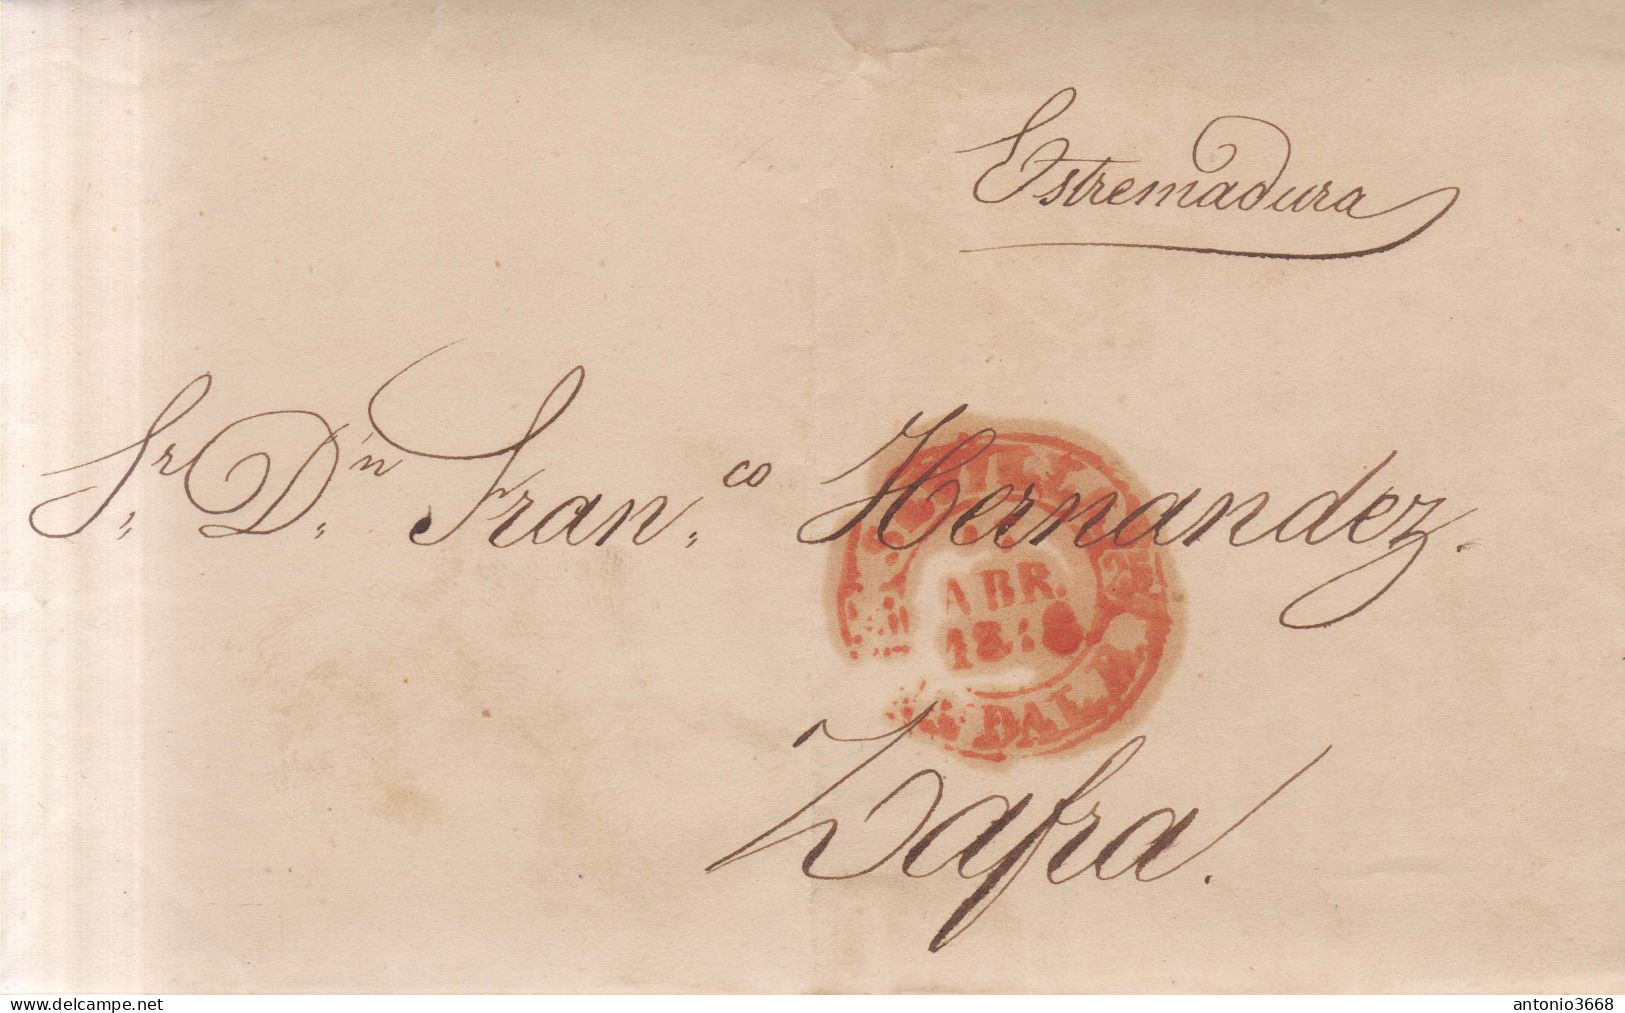 Estremadura
Sr. Dn. Fran.co Hernandez.
ABR.
Zafra.
www.delcampe.net
antonio3668